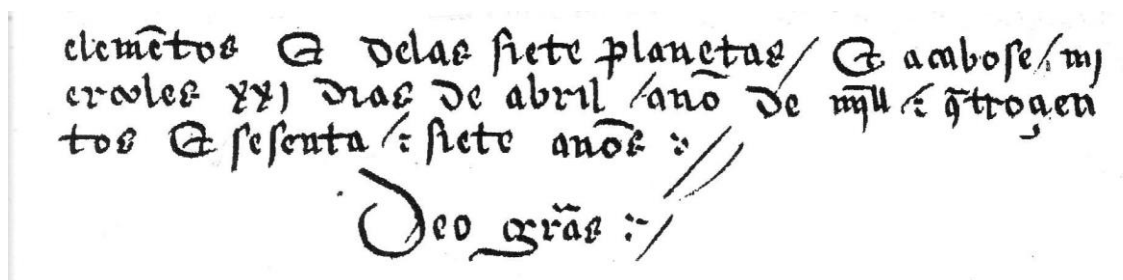 elemẽtos & delas siete planetas / & acabose /. mj
ercoles xxj dias de abril / año de mill /: q̃troçien
tos & sesenta /: siete años :~//
Deo gr̃as :~/